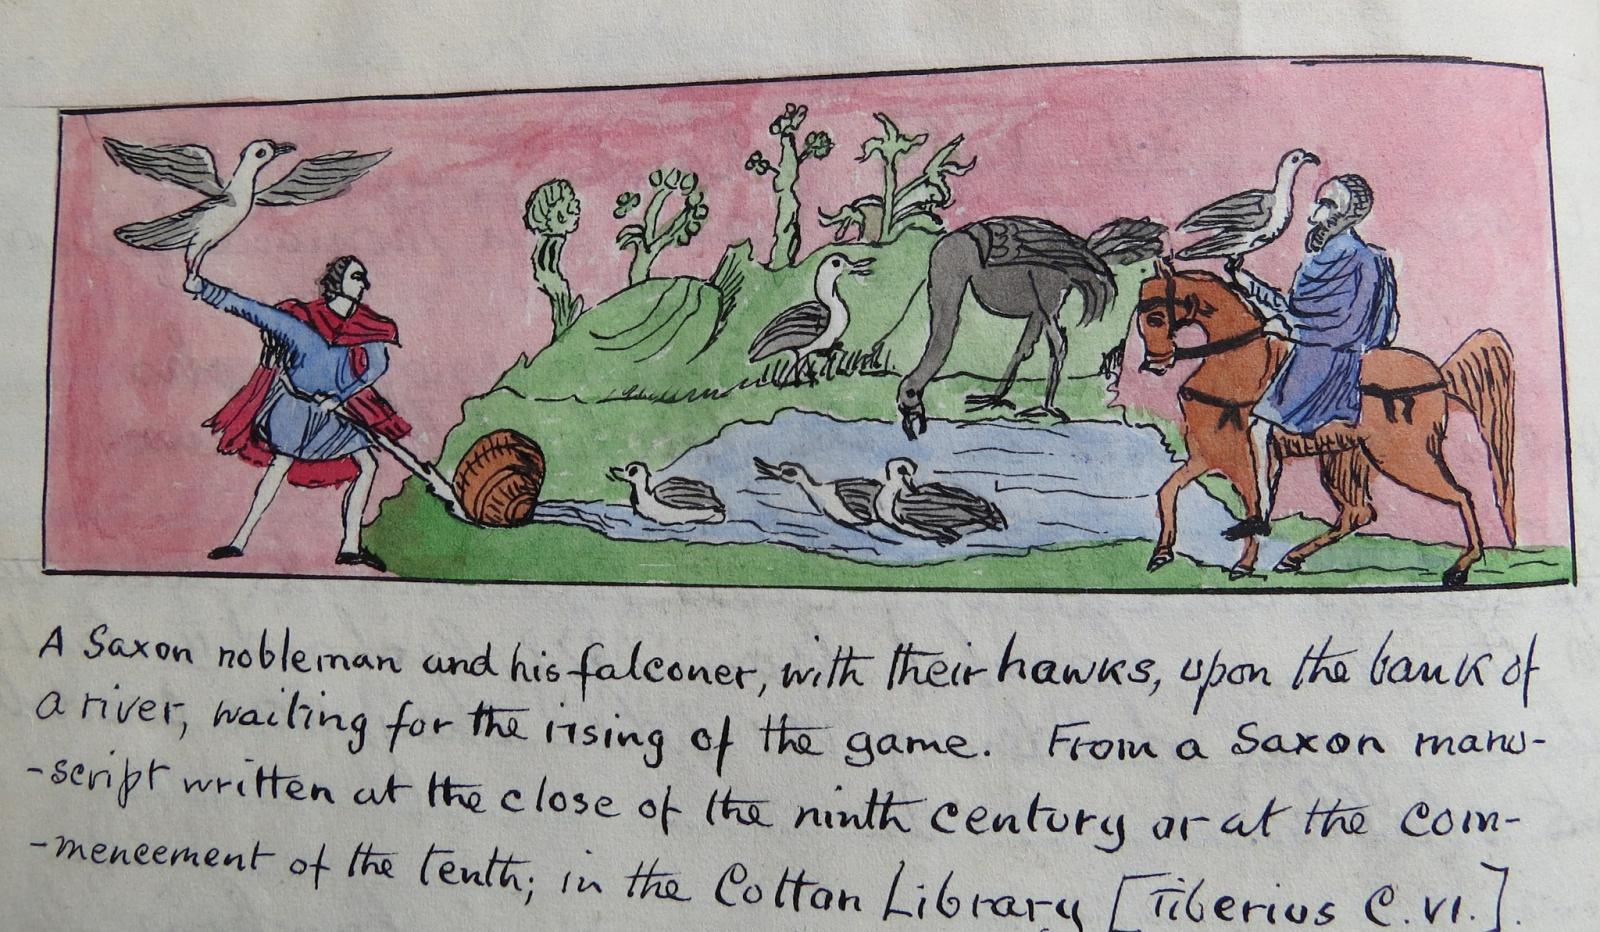 A Saxon nobleman and his falconer, with their hawks, upon the bank of
a river, waiting for the rising of the game. From a Saxon manu-
-script written at the close of the ninth century or at the com-
-mencement of the tenth; in the Cottan Library [Tiberius C.VI.].